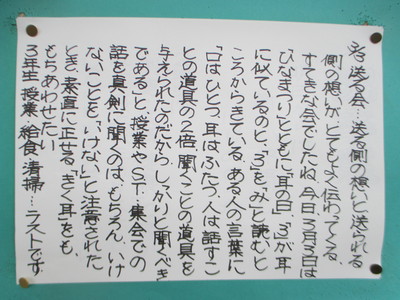 を送る会…送る側の想いと送られる
側の想いが、とてもよく伝わってくる、
すてきな会でしたね。今日、3月3日は
ひなまつりとともに「耳の日」。「3」が耳
に似ているのと、「3」を「み」と読むと
ころからきている。ある人の言葉に
「口はひとつ、耳はふたつ。人は話すこ
との道具の2倍、聞くことの道具を
与えられたのだから、しっかりと聞くべき
である」と。授業やST、集会での
話を真剣に聞くのはもちろん、いけ
ないことを「いけない」と注意された
とき、素直に正せる、きく耳をも、
もちあわせたい
3年生 授業 給食 清掃…ラストです。